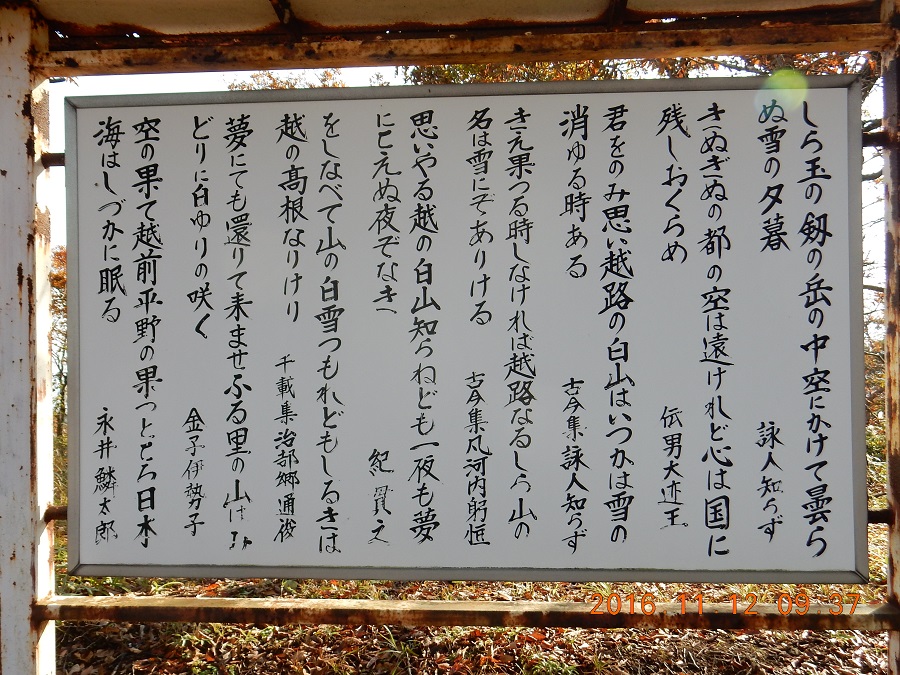 しら玉の劔の岳の中空にかけて曇ら
ぬ雪の夕暮　詠人知らず
きぬぎぬの都の空は遠けれど心は国に
残しおくらめ　伝男大迹王
君をのみ思い越路の白山はいつかは雪の
消ゆる時ある　古今集詠人知らず
きえ果つる時しなければ越路なるしら山の
名は雪にぞありける　古今集凡河内躬恒
思いやる越の白山知らねども一夜も夢
にこえぬ夜ぞなき　紀貫之
をしなべて山の白雪つもれどもしるきは
越の高根なりけり　千載集治部郷通俊
夢にても還りて来ませふる里の山は
どりに白ゆりの咲く　金子伊勢子
空の果て越前平野の果つところ日本
海はしづかに眠る　永井鱗太郎
2016 11 12 09 37